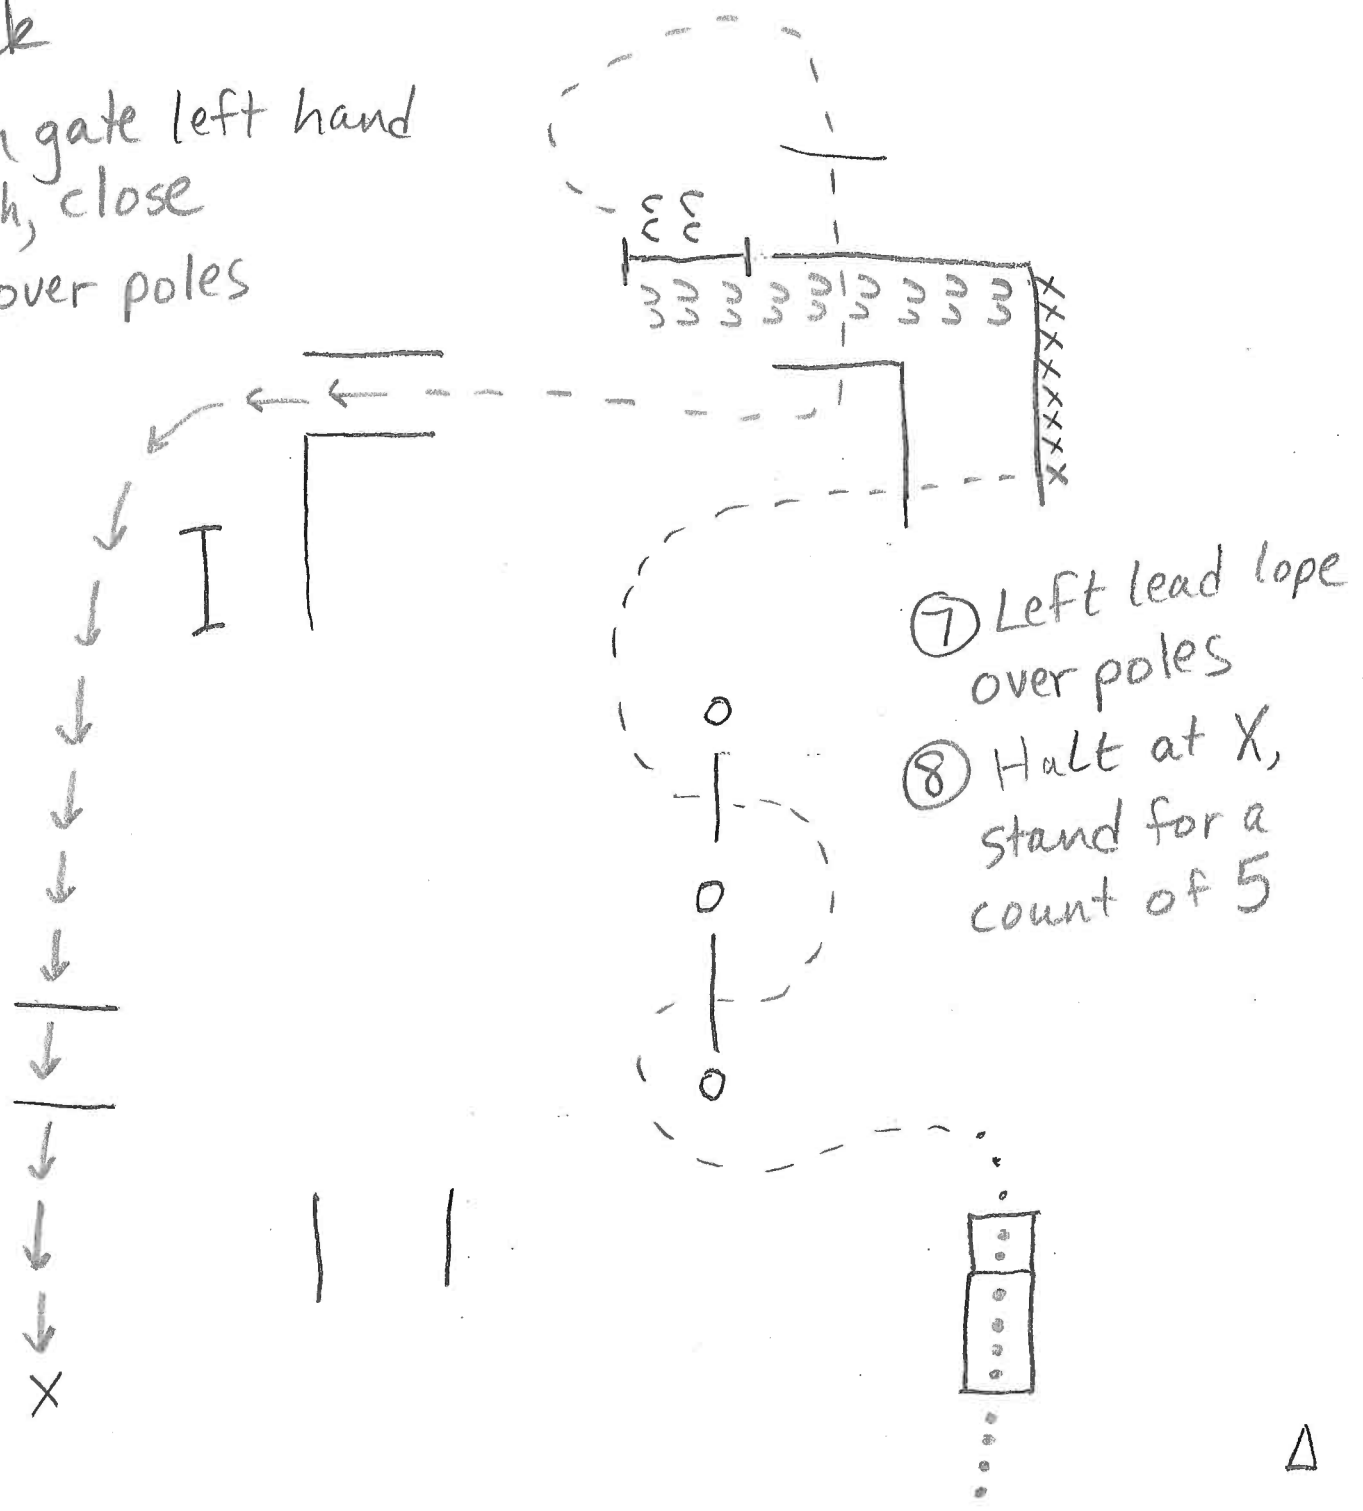 gate left hand
close
over poles
⑦ Left lead lope
over poles
⑧ Halt at X,
stand for a
count of 5
X